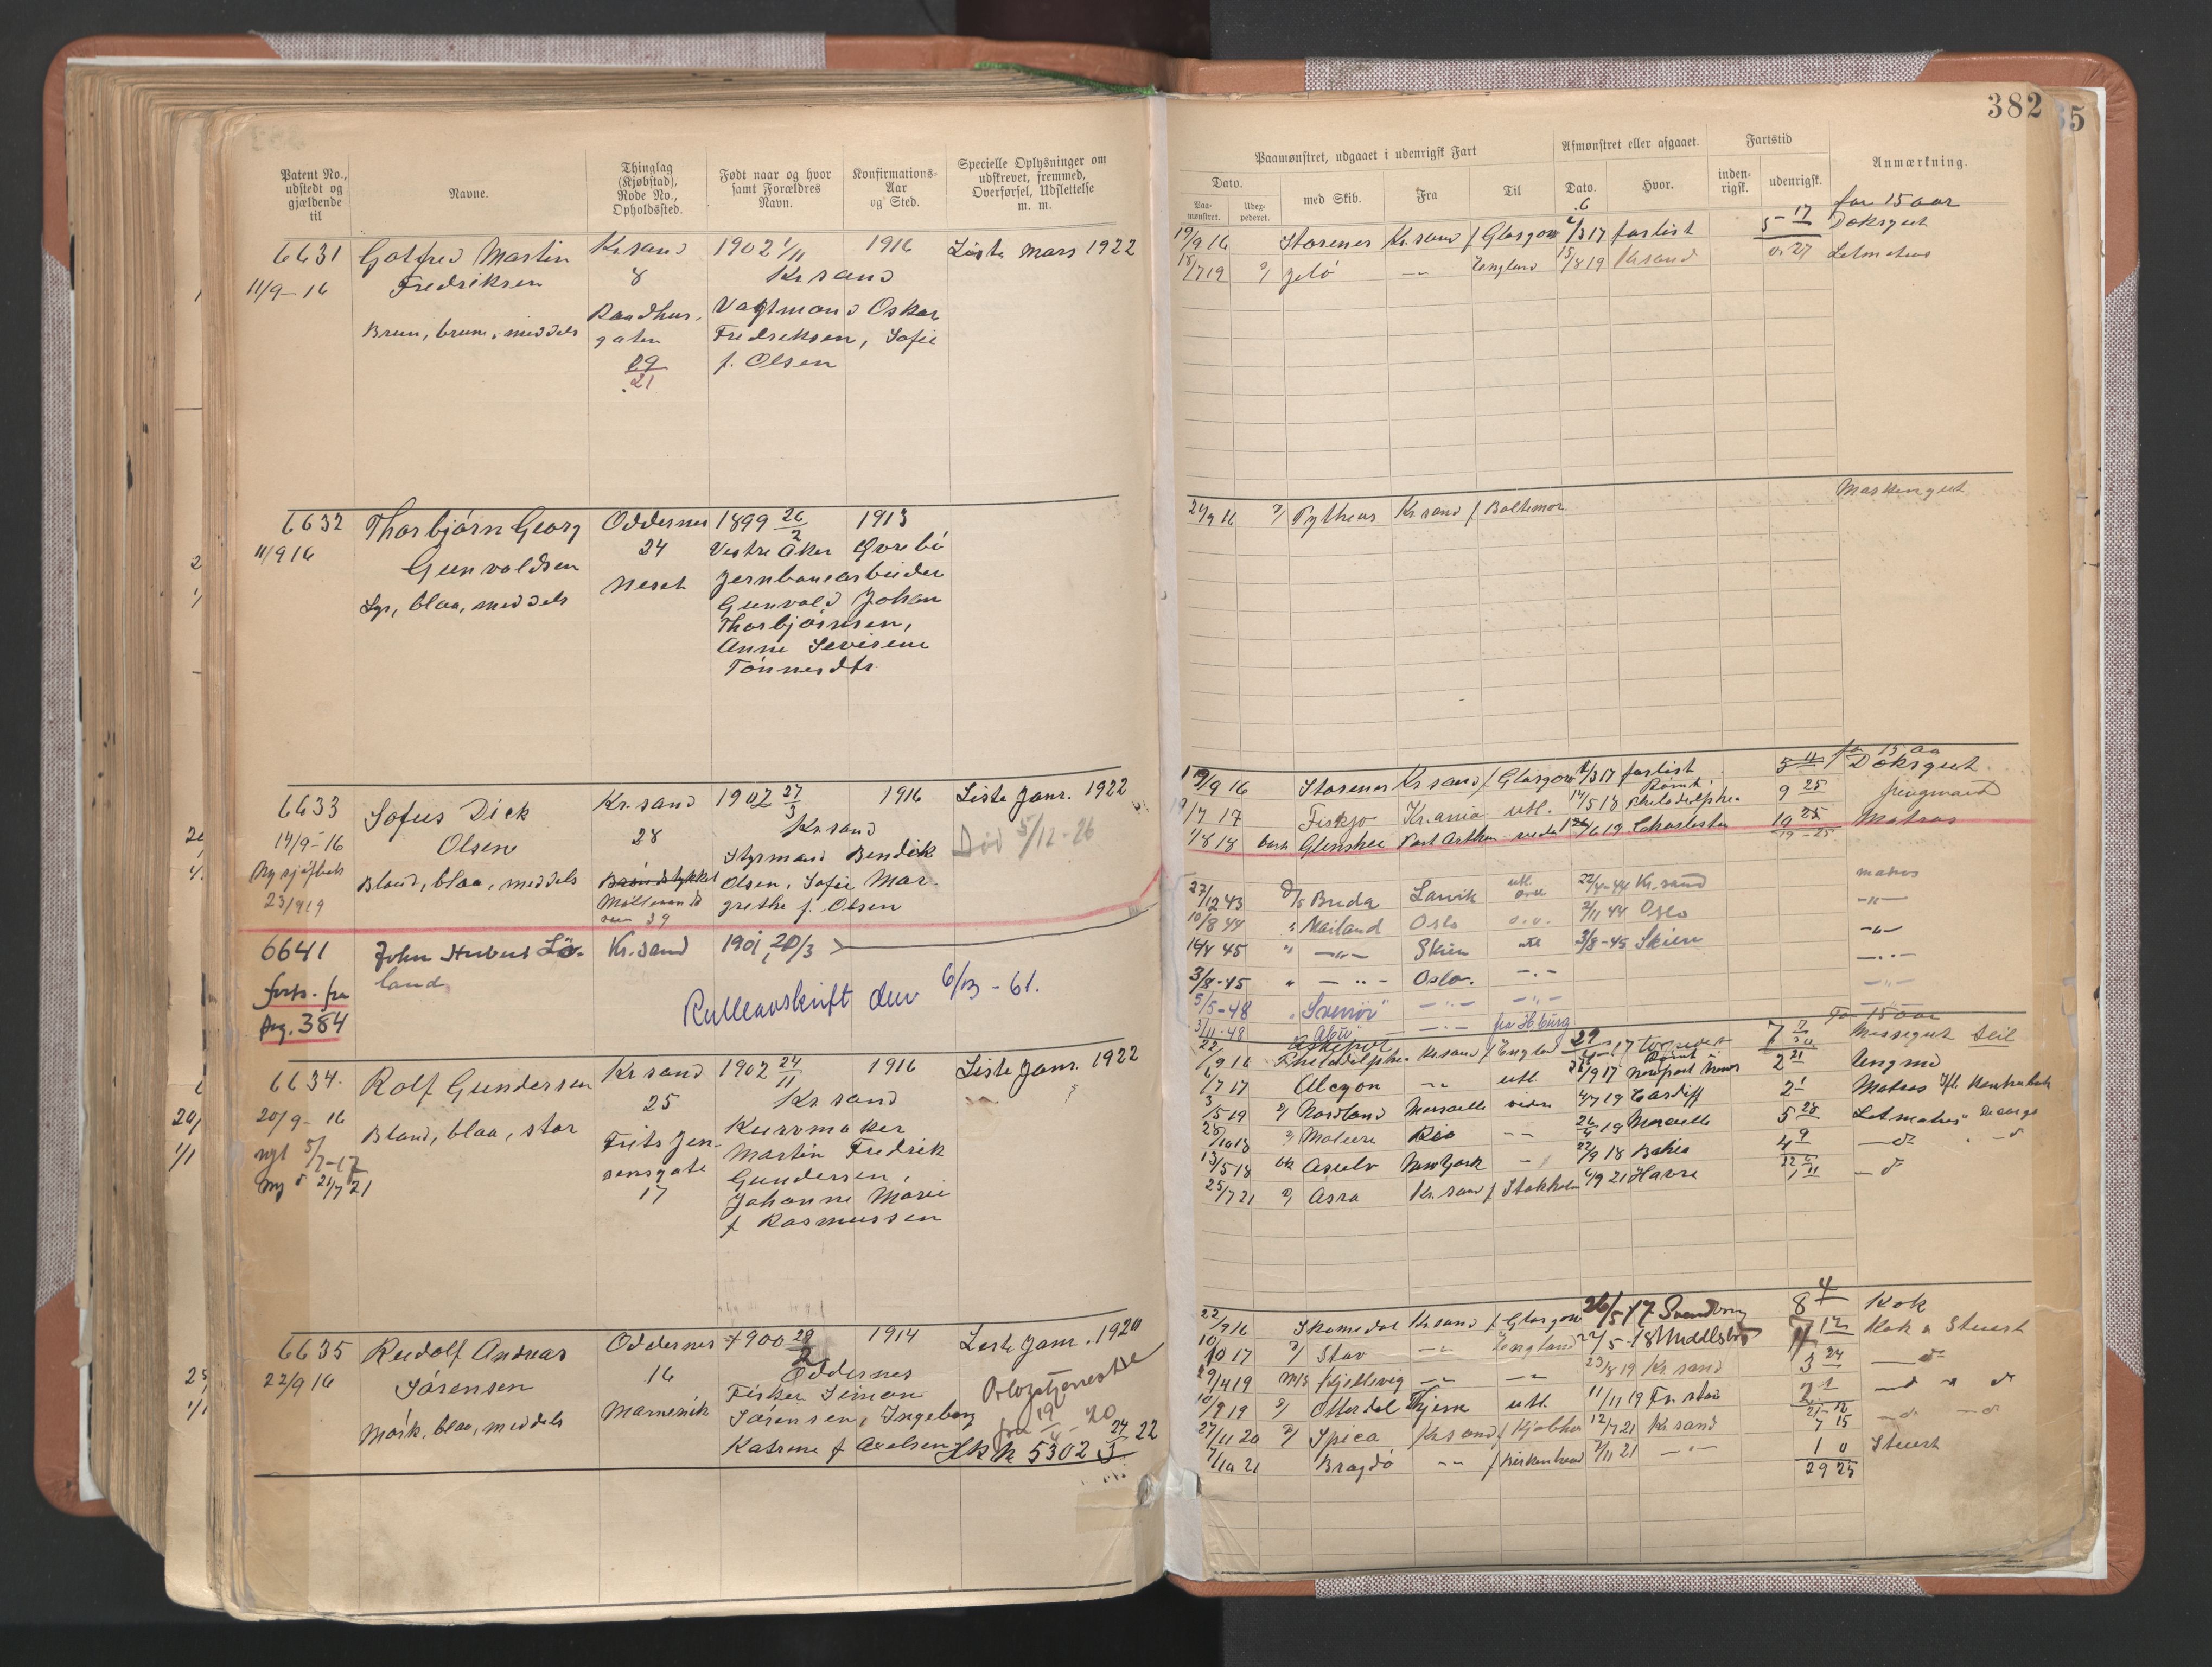 382
35
Patent No., udstedt og gjældende til
Navne.
Thinglag (Kjøbstad), Rode No., Opholdssted.
Født naar og hvor samt Forældres Navn.
Konfirmations-Aar og Sted.
Specielle Oplysninger om udskrevet, fremmed, Overførsel, Udslettelse m. m.
Paamønstret, udgaaet i udenrigsk Fart
Afmønstret eller afgaaet.
Fartstid
Anmærkning.
Dato.
med Skib.
Fra
Til
Dato.
Hvor.
inden-rigsk.
udenrigsk.
Paa-mønstret.
Udex-pederet.
6631 Gotfred Martin Kr.sand 1902 1/11 1916 Liste Mars 1922
11/9-16 Fredriksen 8 Kr sand
Raadhus- Vagtmand Oskar
Brun, brune, meddels gaten Fredriksen, Sofie
29 f. Olsen
21
for 15 aar
19/9 16 Storenes Kr.sand f Glasgow 6/3 17 forlist 5-17 Doksgut
18/7 19 Jelö -"- England 15/8 19 Krsand 0.27 Letmatros
6632 Thorbjörn Georg Oddernes 1899 26/2 1913
11/9 16 Gunvaldsen 24 Vestre Aker Øvrebö
Neset Jernbanearbeider
Lys, blaa, meddels Gunvald Johan
Thorbjörnsen,
Anne Sevisene
Tönnesdtr.
24/9 16 Pytheus Kr.sand f Baltimor Maskingut
6633 Sofus Dick Kr.sand 1902 27/3 1916 Liste Janr. 1922
14/9-16 Olsen 28 Kr.sand Död 5/12-26
Ny sjöfbok Styrmand Bendik
23/9 19 Blond, blaa, meddels Brandstykket Olsen, Sofie Mar-
39 grethe f. Olsen
for 15 aa
19/9 16 Storenes Kr sand f Glasgow 6/3 17 forlist 5 17 Doksgut
1/7 17 Fiskjo Kr.ania utl. 14/5 18 Philadelphia 9 25 Jungmand
1/8 18 bark Glenshee Port Arthur 6 19 Charleston 10 25 Matros
19-25
6641 John Hubert Lö- Kr.sand 1901, 20/3
forts. fra land
pag. 384
Rulleavskrift den 6/3-61.
27/12 43 D/S Breda Larvik utl. 22/4-44 Kr.sand matros
10/8 44 " Mailand Oslo o.o. 2/11 44 Oslo -"-
14/4 45 " -"- Skien utl 3/8-45 Skien -"-
3/8-45 " -"- Oslo. -.- -..-
5/5-48 -"- -"- -"-
3/11-48 fra Hburg
6634. Rolf Gundersen Kr sand 1902 24/11 1916 Liste Janr. 1922
20/9-16 25 Kr sand
Blond, blaa, stor Frits Jen- Kurvmaker
nyt 5/7-17 sensgate Martin Fredrik
ny d 21/7 21 17 Gundersen,
Johanne Marie
f Rasmussen
For 15 aar
22/9 16 Philadelphia Kr.sand f England Messegut Seil
6/7 17 Alcyon -"- utl. 9 17 Newport News 2 21 Ungmd
3/5 19 Nordland Marseille videre 4/7 19 Cardiff 2 1 Matros
28/10 18 Rio -"- 26/4 19 Marseille 5 28 Letmatros
13/5 18 bk New York -"- 22/9 18 Bahia 4 9 -d-
25/7 21 Asra Kr.sand f Stokholm 6/9 21 Havre -d-
6635 Rudolf Andreas Oddernes 1900 29/2 1914 Liste Janr. 1920
22/9 16 Sörensen 16 Oddernes
Fisker Simon Orlogstjeneste
Mörk, blaa, meddels Marnevik Sörensen, Ingeborg fra 19/4-20
Katrine f Axelsen 5302 24/5 22
22/9 16 Skomedal Kr.sand f Glasgow 26/5 17 8 4 Kok
10/10 17 Stav -"- England 22/5-18 Middlsbro 7 12 Kok & Stuert
29/4 19 M/S Kjellevig -"- -"- 23/8 19 Kr sand 3 24 -d-
10/9 19 Otterdal utl. 11/11 19 Fr.stad 2 1 -d- " d
21-12
27/11 20 Spica Kr.sand f Kjøbhn 12/7 21 Kr sand 7 15 -d- -d
7/10 21 Bragdö -"- f Birkenhead 7/11 21 -"- 1 0 Stuert
29 25